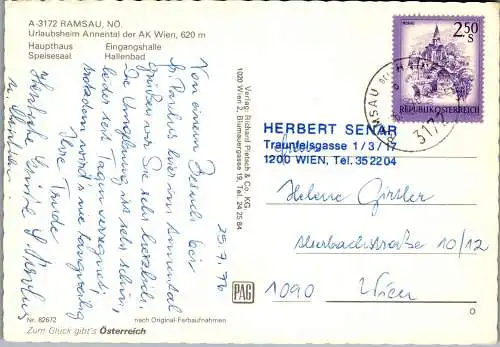 A-3172 RAMSAU, NÖ.
Urlaubsheim Annental der AK Wien, 620 m
Haupthaus Eingangshalle
Speisesaal Hallenbad
25.7.76
Von einem Besuch bei
hier im Annental
grüßen wir Sie sehr herzlich.
Die Umgebung ist sehr schön,
leider seit Tagen verregnet,
trotzdem wird's nie langweilig
Ihre Trude
Herzliche Grüße
Nr. 82672
nach Original-Farbaufnahmen
Zum Glück gibt's Österreich
Verlag: Richard Pietsch & Co. KG.
1020 Wien 2, Blumauergasse 19, Tel. 24 25 84
PAG
2.50
S
REPUBLIK ÖSTERREICH
RAMSAU BEI HAINFELD
3172
HERBERT SENAR
Traunfelsgasse 1/3/17
1200 WIEN, Tel. 352204
Frau
Helene Girtler
10/12
1090 Wien